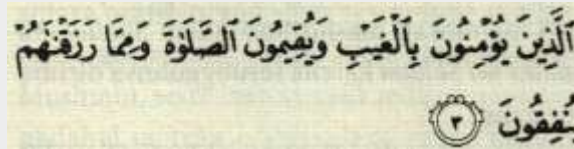 الَّذِينَ يُؤْمِنُونَ بِالْغَيْبِ وَيُقِيمُونَ الصَّلٰوةَ وَمِمَّا رَزَقْنٰهُمْ
يُنْفِقُونَ ﴿٣﴾